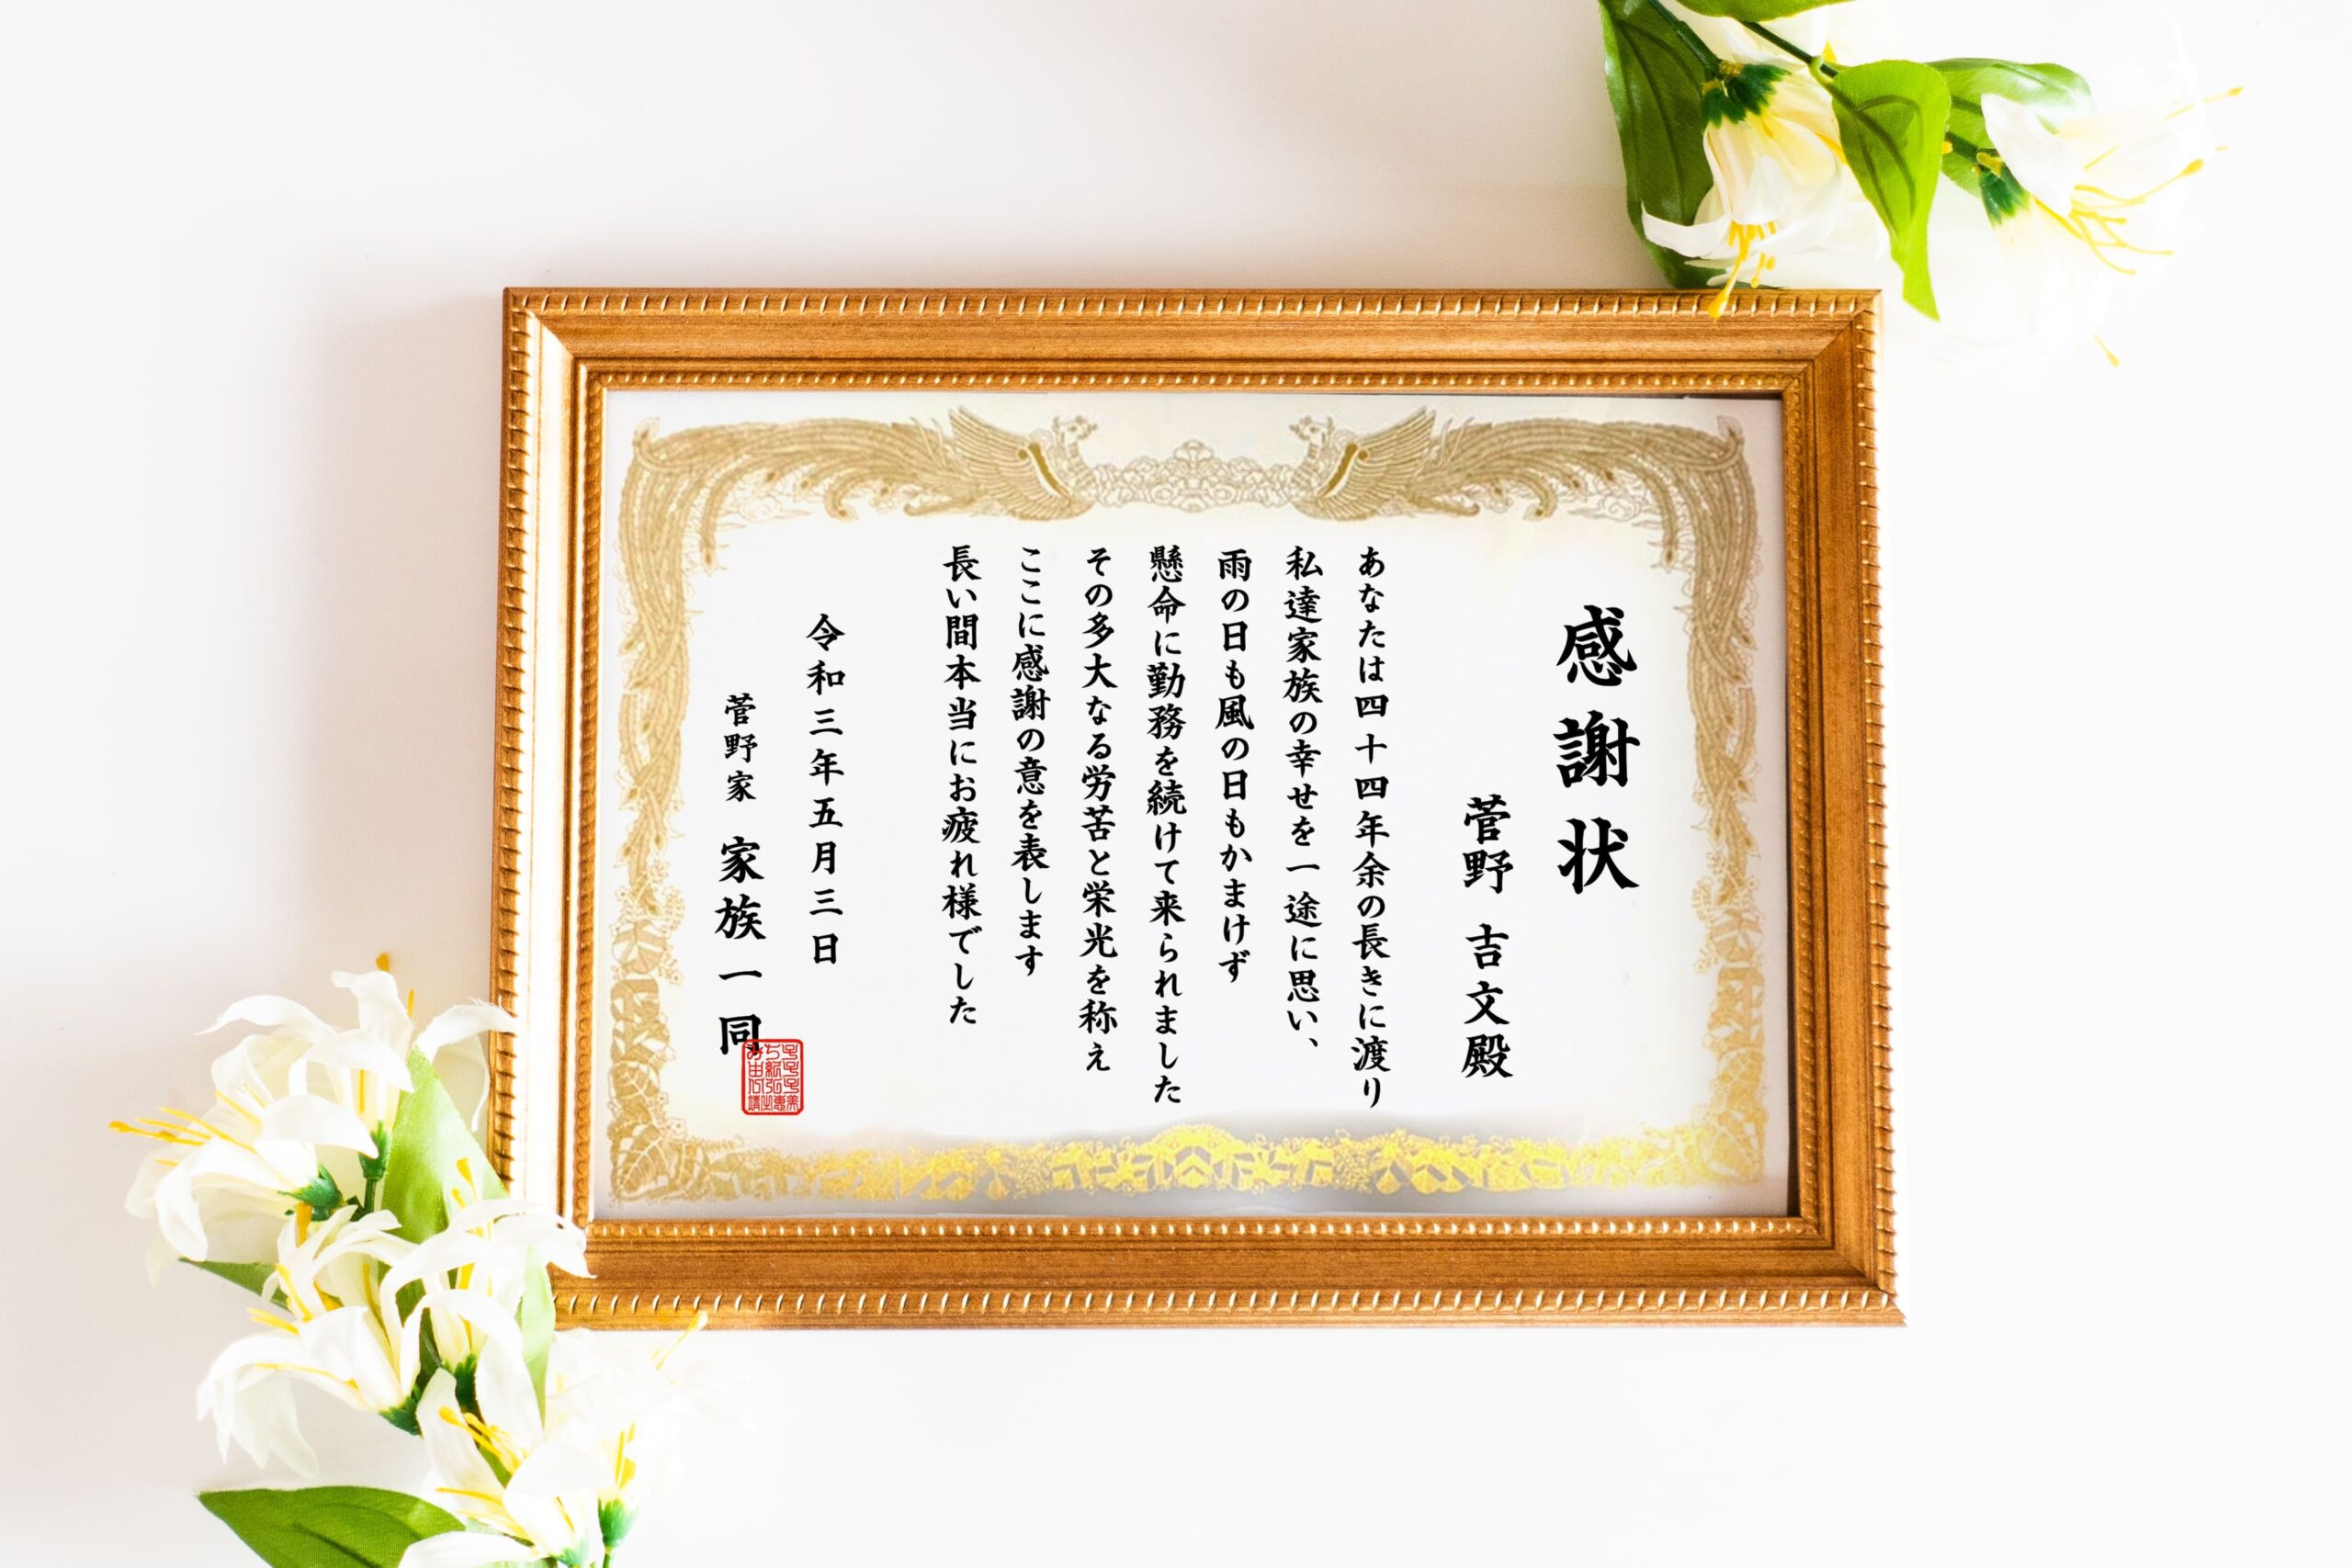 感謝状
菅野 吉文殿
あなたは四十四年余の長きに渡り
私達家族の幸せを一途に思い、
雨の日も風の日もかまけず
懸命に勤務を続けて来られました
その多大なる労苦と栄光を称え
ここに感謝の意を表します
長い間本当にお疲れ様でした
令和三年五月三日
菅野家 家族一同